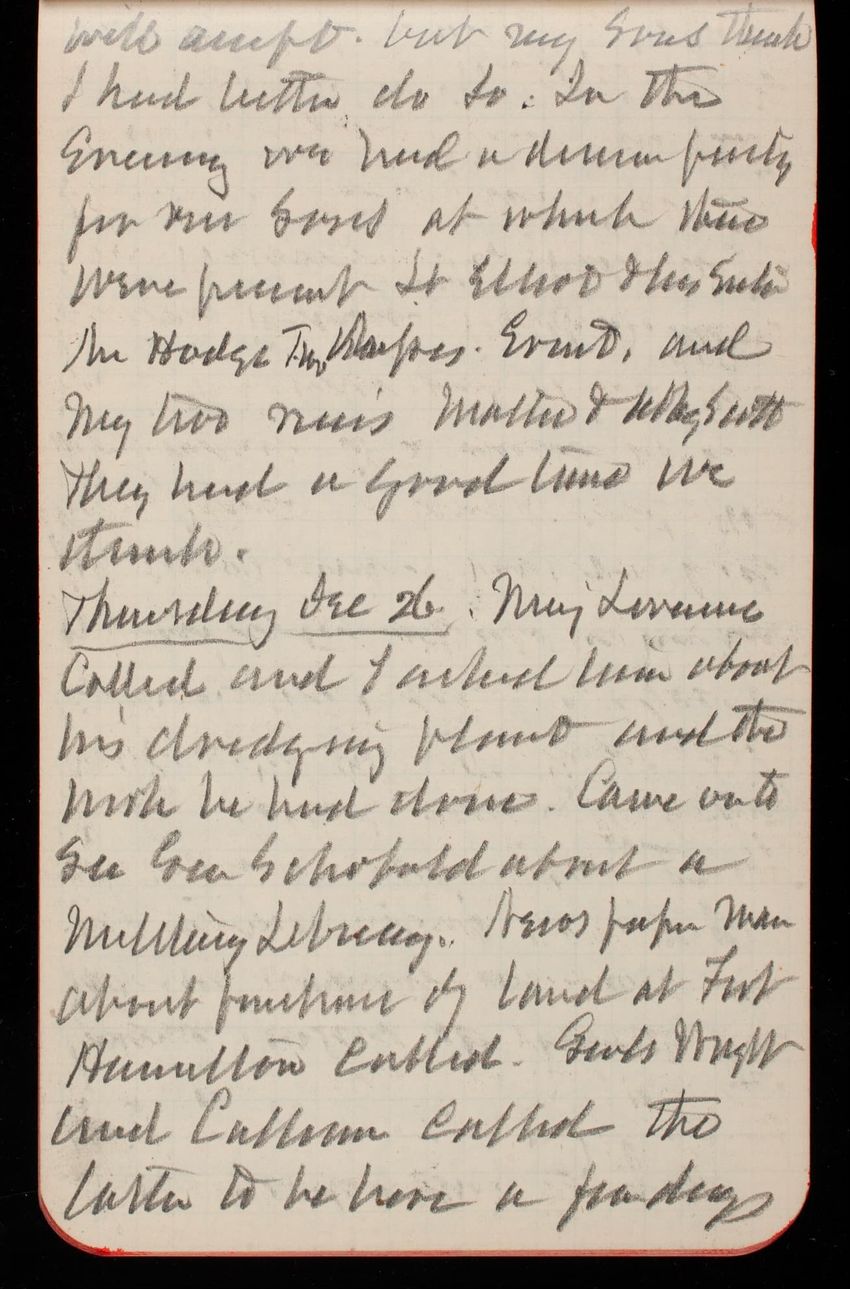 will accept. but my Sons think
I had better do so. In the
Evening we had a dinner party
for our Sons at which there
were present Lt Elliot & his Sister
Mr Hodge Evint, and
My two neices Mattie & Scott
They had a Good time we
think.
Thursday Dec 26. Maj Lorraine
Called and I asked him about
his dredging plant and the
work he had done. Came out to
See Gen Schofield about a
Military Library. News paper Man
about purchase of land at Fort
Hamilton Called. Genls Wright
and Calhoun Called the
latter to be here a few days